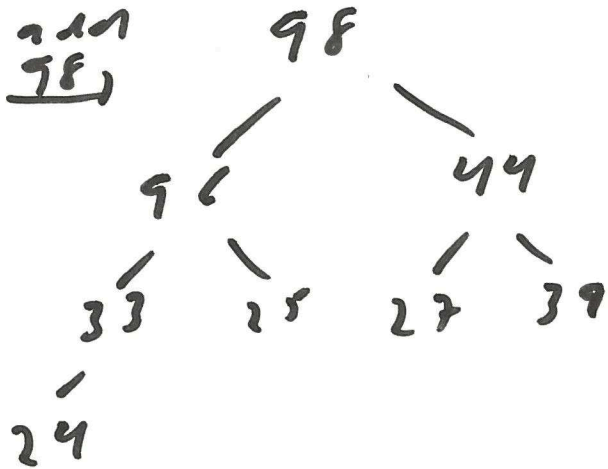 add
98
98
96 44
33 25 27 39
24